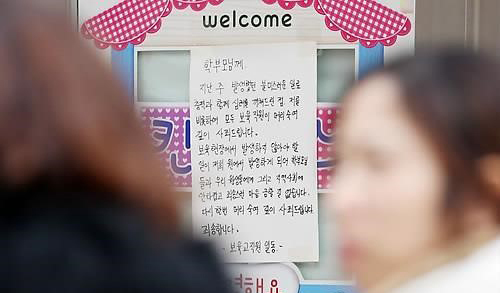 welcome
학부모님께.
지난 주 발생했던 불미스러운 일로
충격과 함께 심려를 끼쳐드린 점 저를
비롯하여 모두 보육직원이 머리숙여
깊이 사죄드립니다.
보육현장에서 발생하지 않아야 할
일이 저희 원에서 발생하게 되어 학부모님
들과 우리 원생들에게 그리고 지역사회에
안타깝고 죄송스런 마음 금할 길 없습니다.
다시 한번 머리 숙여 깊이 사죄드립니다.
죄송합니다.
- 보육교직원 일동 -